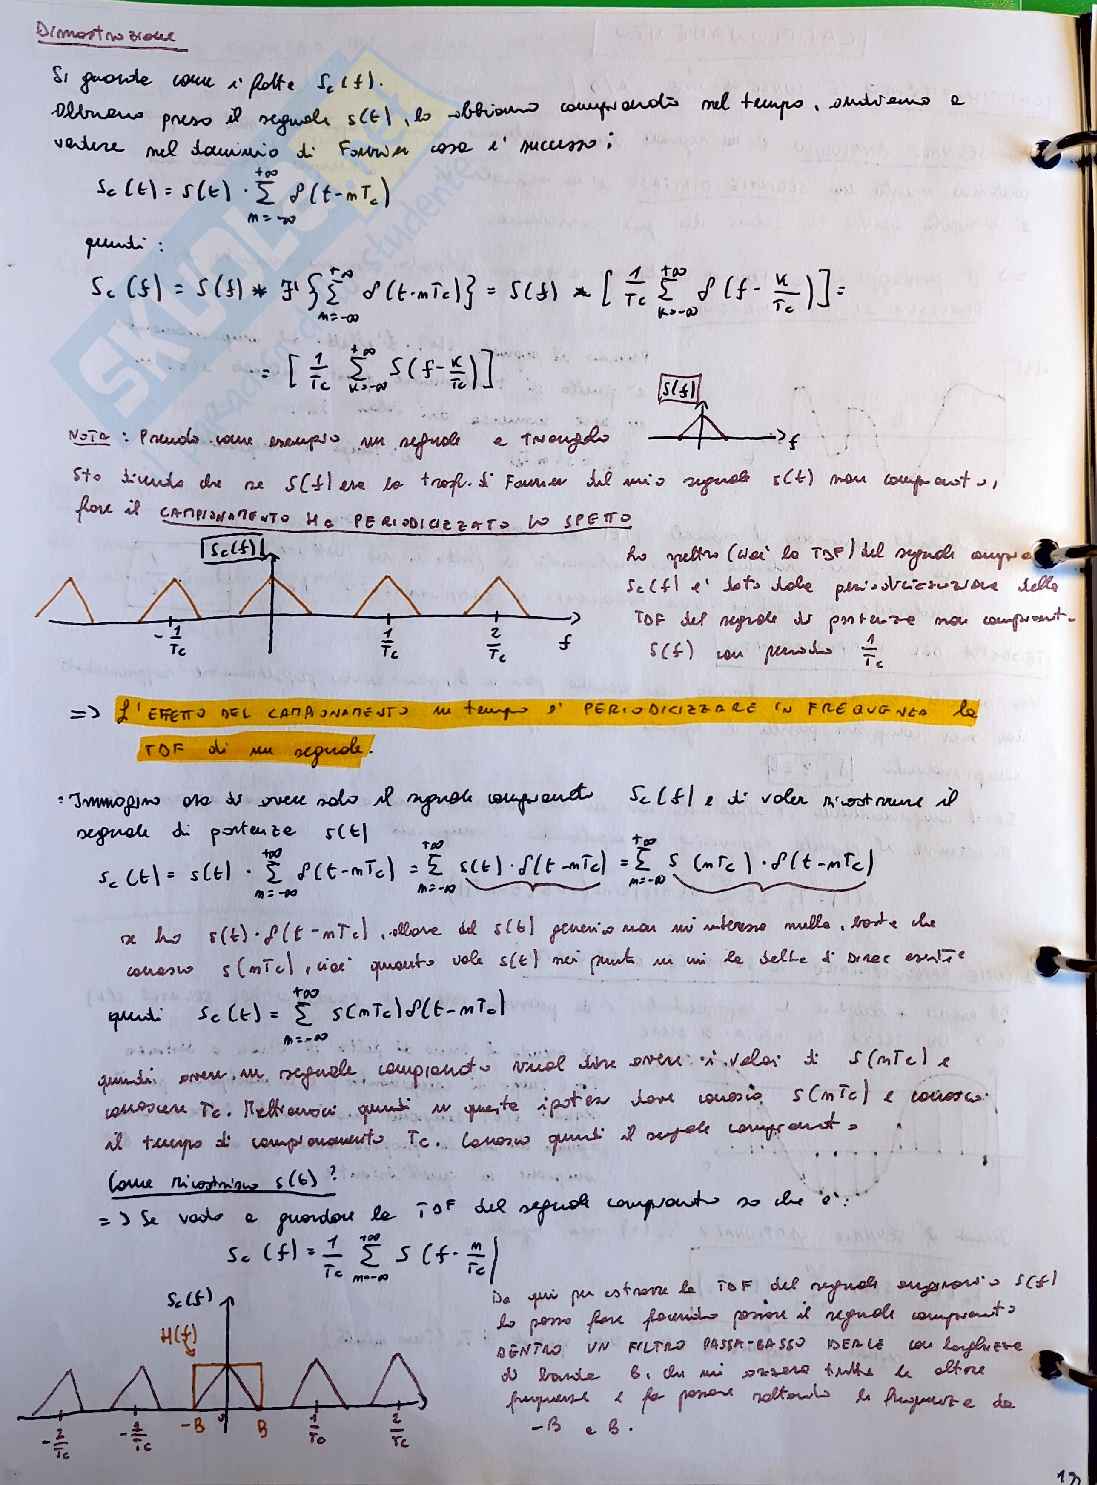 Dimostrazione
Si guarda come è fatta Sc(f).
Abbiamo preso il segnale s(t), lo abbiamo campionato nel tempo, andiamo a
vedere nel dominio di Fourier cosa è successo:
sc(t) = s(t) · Σ_{n=-∞}^{+∞} δ(t-nTc)
quindi:
Sc(f) = S(f) * F{Σ_{n=-∞}^{+∞} δ(t-nTc)} = S(f) * [1/Tc Σ_{k=-∞}^{+∞} δ(f-k/Tc)] =
= [1/Tc Σ_{k=-∞}^{+∞} S(f-k/Tc)]
S(f)
f
NOTA: Prendo come esempio un segnale a triangolo
Sto dicendo che se S(f) era la trasf. di Fourier del mio segnale s(t) non campionato,
fare il CAMPIONAMENTO HA PERIODICIZZATO LO SPETTO
Sc(f)
-1/Tc 1/Tc 2/Tc f
Lo spettro (cioè la TDF) del segnale
Sc(f) è dato dalla periodicizzazione della
TDF del segnale di partenza non campionato
S(f) con periodo 1/Tc
=> L'EFFETTO DEL CAMPIONAMENTO in tempo è PERIODICIZZARE IN FREQUENZA la
TDF di un segnale.
: Immagino ora di avere solo il segnale campionato Sc(f) e di voler ricostruire il
segnale di partenza s(t)
sc(t) = s(t) · Σ_{n=-∞}^{+∞} δ(t-nTc) = Σ_{n=-∞}^{+∞} s(t) · δ(t-nTc) = Σ_{n=-∞}^{+∞} s(nTc) · δ(t-nTc)
se ho s(t) · δ(t-nTc), allora del s(t) generico non mi interessa nulla, basta che
conosco s(nTc), cioè quanto vale s(t) nei punti in cui la delta di Dirac esiste
quindi sc(t) = Σ_{n=-∞}^{+∞} s(nTc)δ(t-nTc)
quindi avere un segnale campionato vuol dire avere i valori di s(nTc) e
conoscere Tc. Mettiamoci quindi in questa ipotesi dove conosco s(nTc) e conosco
il tempo di campionamento Tc. Conosco quindi il segnale campionato
Come ricostruisco s(t)?
=> Se vado a guardare la TDF del segnale campionato so che è:
Sc(f) = 1/Tc Σ_{n=-∞}^{+∞} S(f-n/Tc)
Sc(f)
H(f)
-2/Tc -1/Tc -B B 1/Tc 2/Tc
Da qui per estrarre la TDF del segnale originario S(f)
lo posso fare facendo passare il segnale campionato
DENTRO UN FILTRO PASSA-BASSO IDEALE con larghezza
di banda B, che mi azzera tutte le altre
frequenze e fa passare soltanto le frequenze da
-B a B.